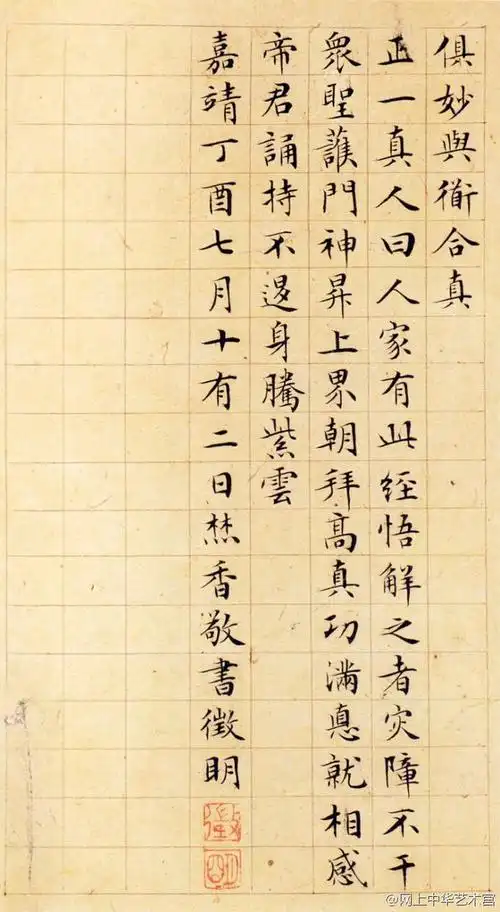 俱妙與衜合真
正一真人曰人家有此經悟解之者灾障不干
衆聖護門神昇上界朝拜高真功滿悳就相感
帝君誦持不退身騰紫雲
嘉靖丁酉七月十有二日焚香敬書徵明
徵
明
@网上中华艺术宫